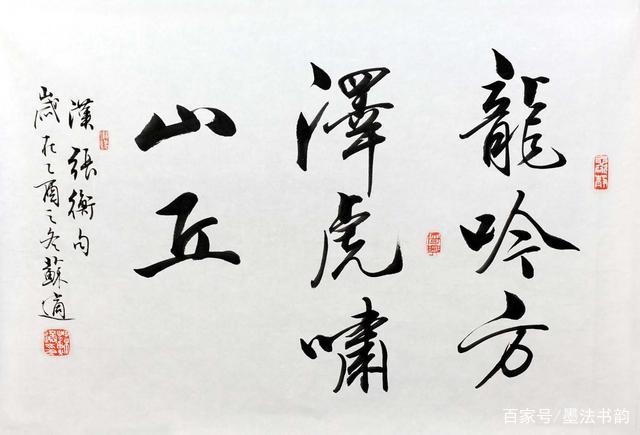 龍吟方
澤虎嘯
山丘
漢張衡句
歲在乙酉之冬蘇適
百家号/墨法书韵